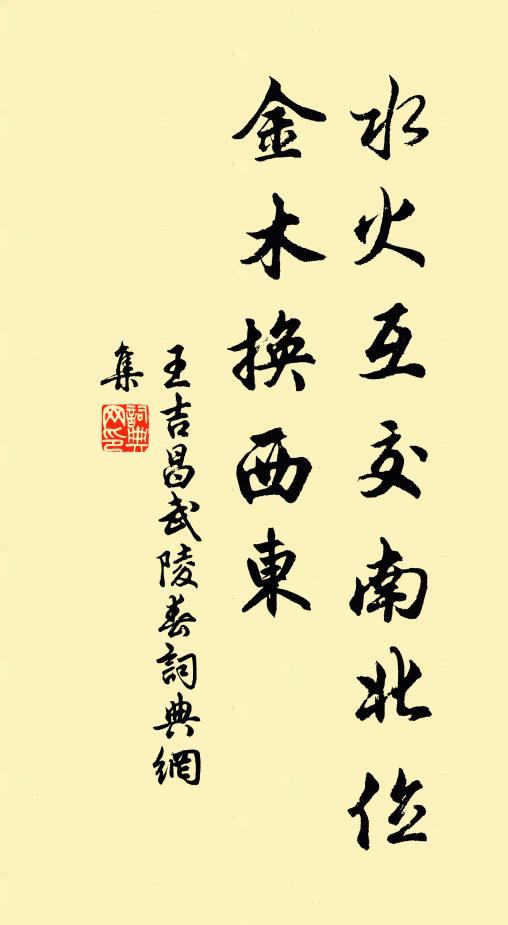 水火互交南北位
金木換西東
王吉昌武陵春詞典網
集
詞典网印